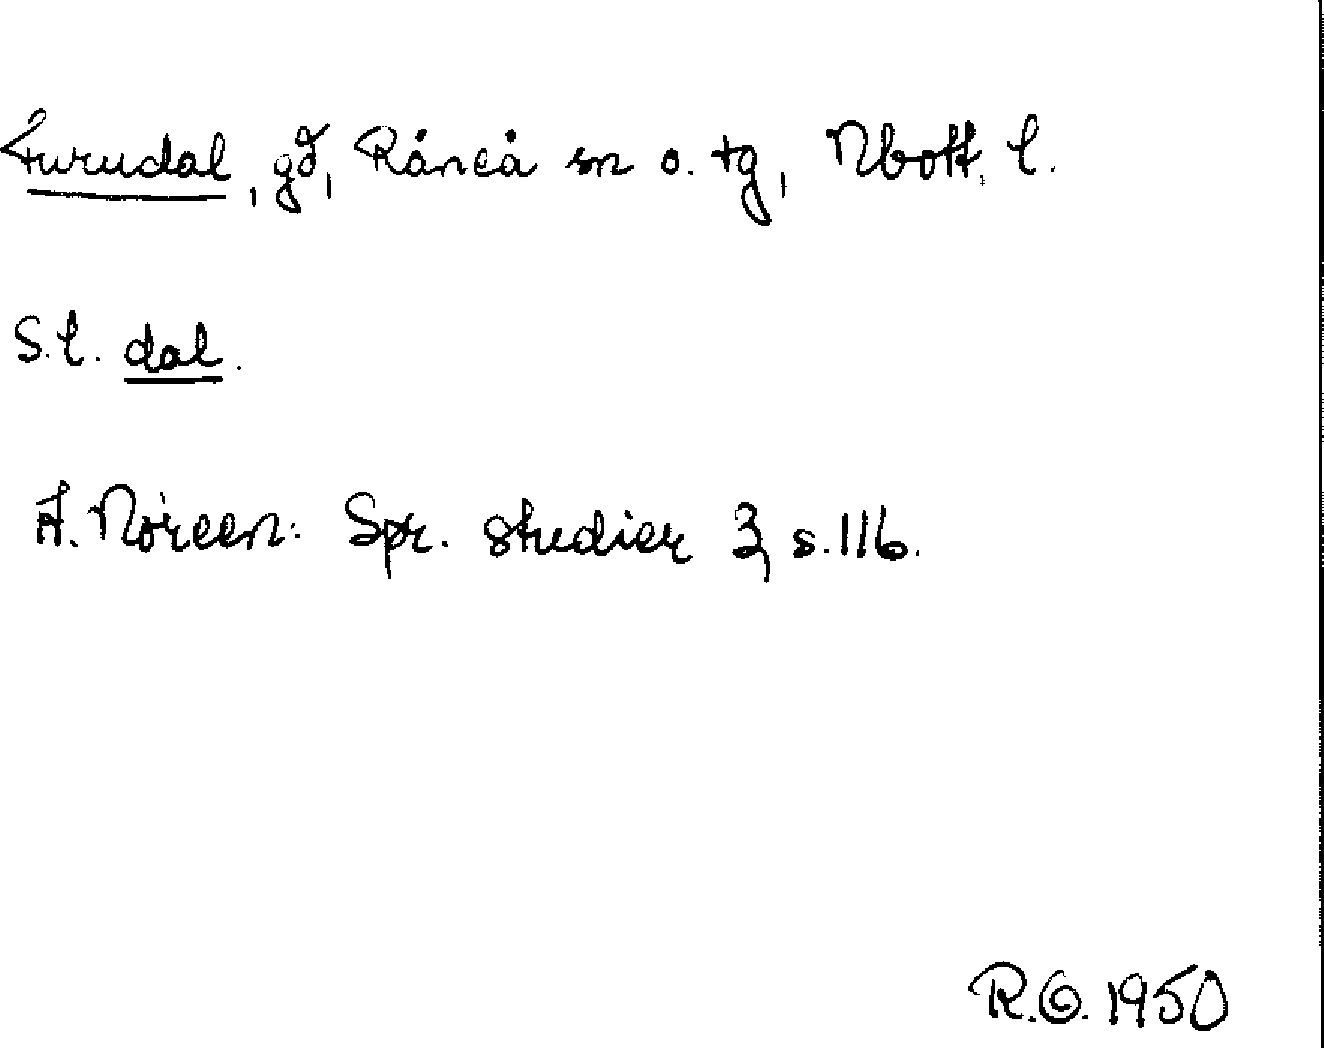 Furudal, gd, Råneå sn o. tg, Nbott. l.
S.l. dal.
A. Noreen: Spr. studier 3, s.116.
R.G. 1950